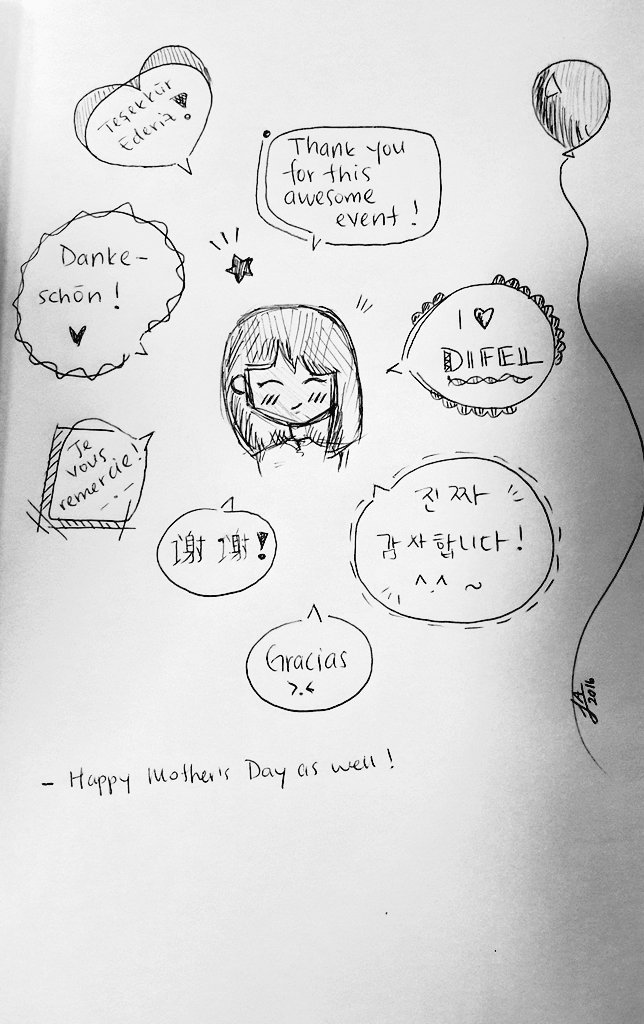 Teşekkür
Ederiz!
Thank you
for this
awesome
event!
Danke-
schön!
I ♥
DIFEL
Je
vous
remercie!
진짜
감사합니다!
^.^ ~
谢谢!
Gracias
>.<
JA
2016
- Happy Mother's Day as well!